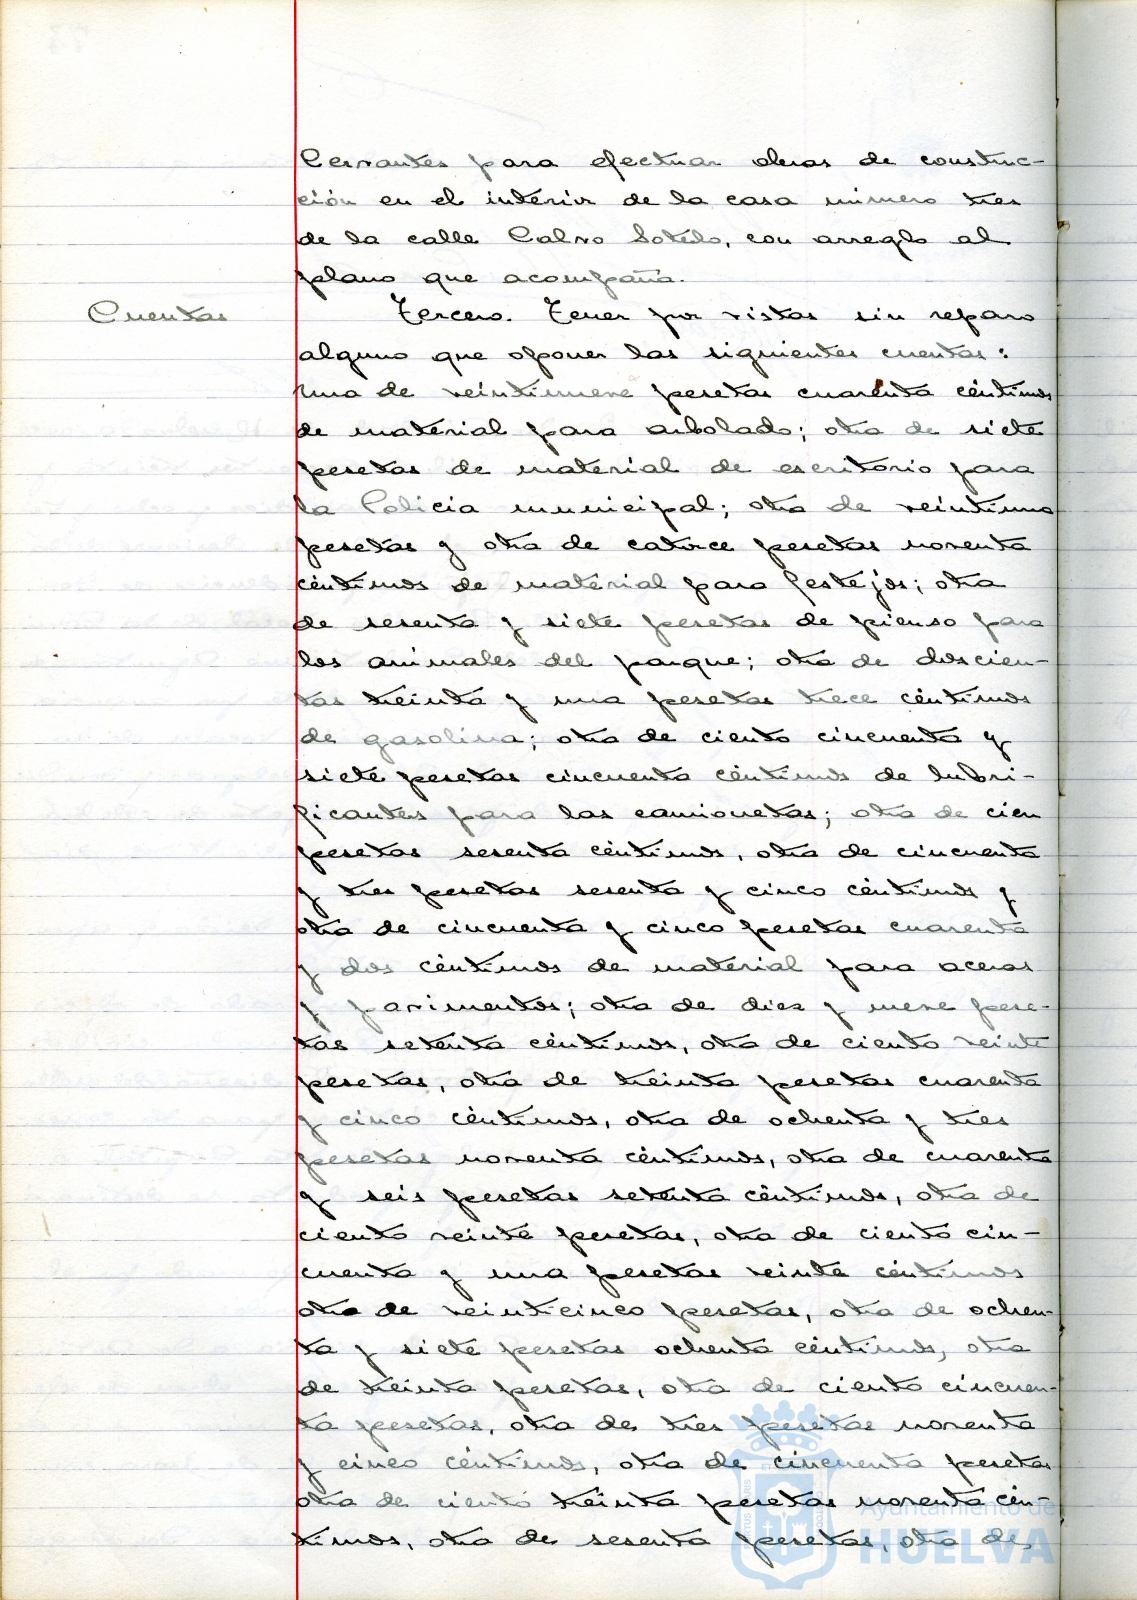 Cervantes para efectuar obras de construc-
ción en el interior de la casa número tres
de la calle Calvo Sotelo, con arreglo al
plano que acompaña.
Cuentas
Tercero. Tener por vistas sin reparo
alguno que oponer las siguientes cuentas:
Una de veintinueve pesetas cuarenta céntimos
de material para arbolado; otra de siete
pesetas de material de escritorio para
la Policia municipal; otra de veintiuna
pesetas y otra de catorce pesetas noventa
céntimos de material para festejos; otra
de sesenta y siete pesetas de pienso para
los animales del parque; otra de doscien-
tas treinta y una pesetas trece céntimos
de gasolina; otra de ciento cincuenta y
siete pesetas cincuenta céntimos de lubri-
ficantes para las camionetas; otra de cien
pesetas sesenta céntimos, otra de cincuenta
y tres pesetas sesenta y cinco céntimos y
otra de cincuenta y cinco pesetas cuarenta
y dos céntimos de material para aceras
y pavimentos; otra de diez y nueve pese-
tas setenta céntimos, otra de ciento veinte
pesetas, otra de treinta pesetas cuarenta
y cinco céntimos, otra de ochenta y tres
pesetas noventa céntimos, otra de cuarenta
y seis pesetas setenta céntimos, otra de
ciento veinte pesetas, otra de ciento cin-
cuenta y una pesetas veinte céntimos
otra de veinticinco pesetas, otra de ochen-
ta y siete pesetas ochenta céntimos, otra
de treinta pesetas, otra de ciento cincuen-
ta pesetas, otra de tres pesetas noventa
y cinco céntimos, otra de cincuenta pesetas
otra de ciento treinta pesetas noventa cén-
timos, otra de sesenta pesetas, otra de
Ayuntamiento de
HUELVA